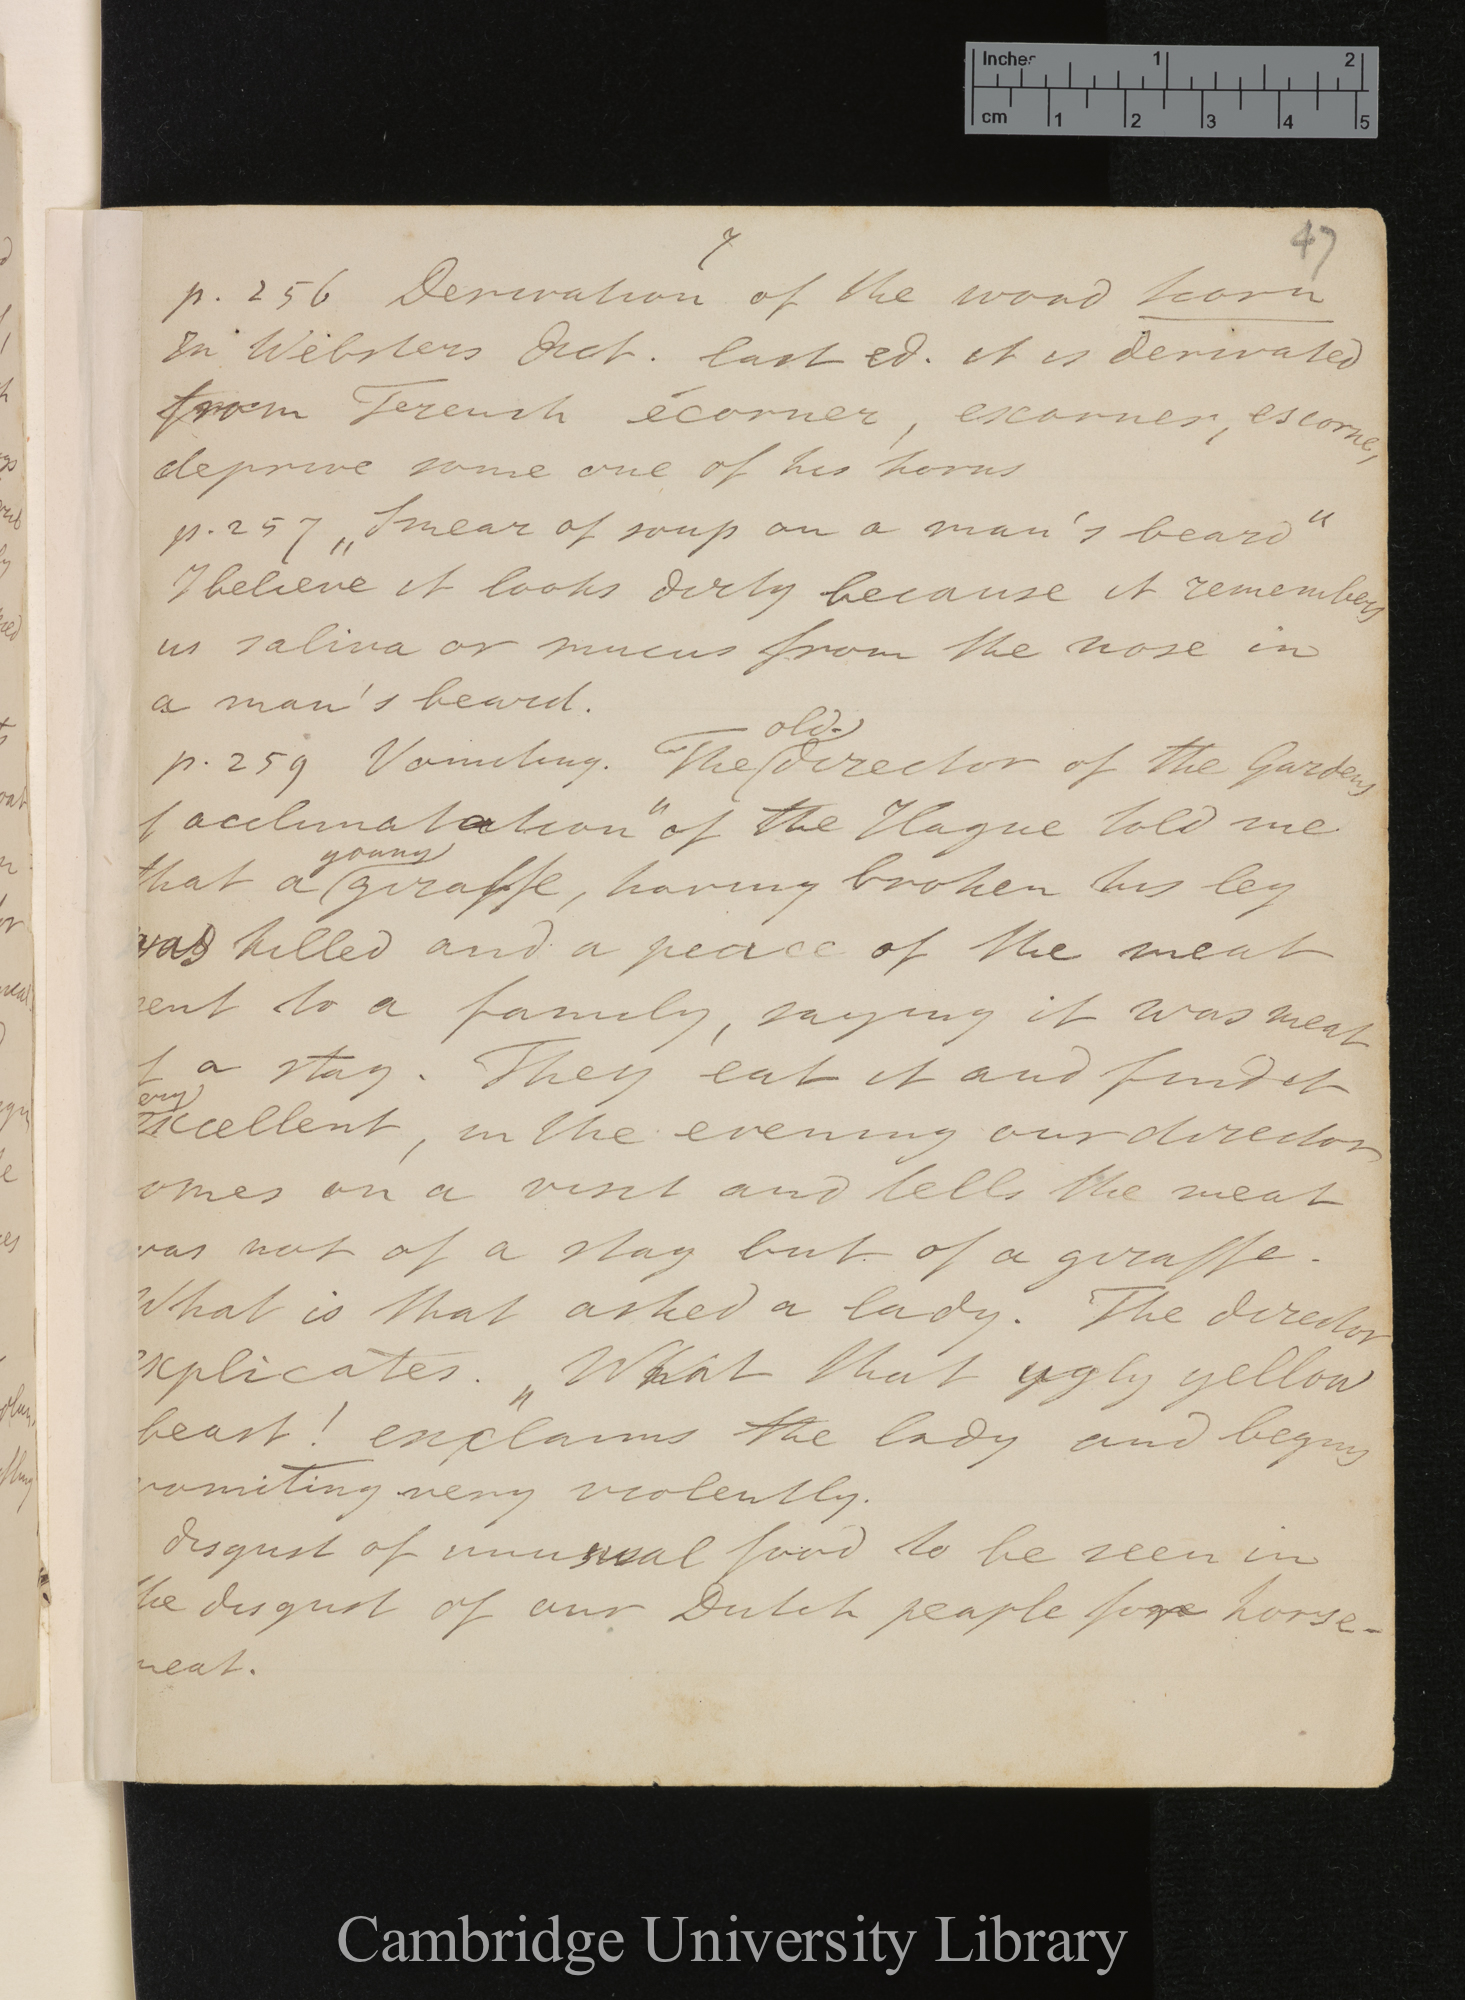 Inches 1 2
cm 1 2 3 4 5
7
47
p. 256 Derivation of the word scorn
In Websters Dict. last ed. it is derivated
from French écorner, excorner, escorne,
deprive some one of his horns
p. 257 „Smear of soup on a man's beard"
I believe it looks dirty because it remembers
us saliva or mucus from the nose in
a man's beard.
old
p. 259 Vomiting. The director of the Gardens
acclimatation" of the Hague told me
young
that a giraffe, having broken his leg
was killed and a peace of the meat
sent to a family, saying it was meat
f a stag. They eat it and find it
ery
excellent, in the evening our director
omes on a visit and tells the meat
was not of a stag but of a giraffe.
What is that asked a lady. The director
explicates. „What that ugly yellow
beast! exclaims the lady and begins
vomiting very violently.
disgust of unusual food to be seen in
the disgust of our Dutch people for horse-
meat.
Cambridge University Library